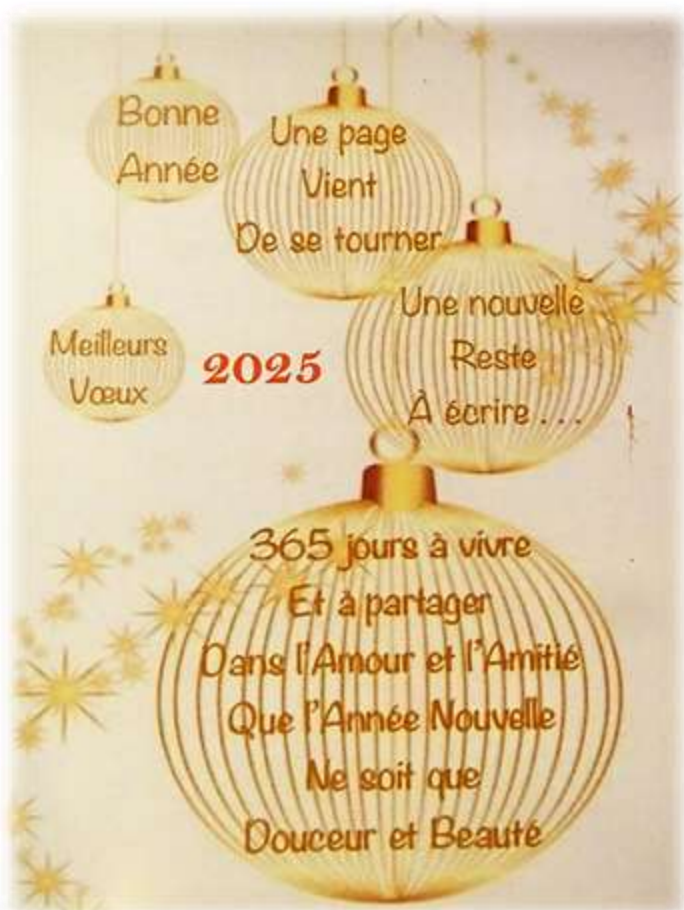 Bonne
Année
Une page
Vient
De se tourner
Une nouvelle
Reste
À écrire . . .
Meilleurs
Vœux
2025
365 jours à vivre
Et à partager
Dans l'Amour et l'Amitié
Que l'Année Nouvelle
Ne soit que
Douceur et Beauté